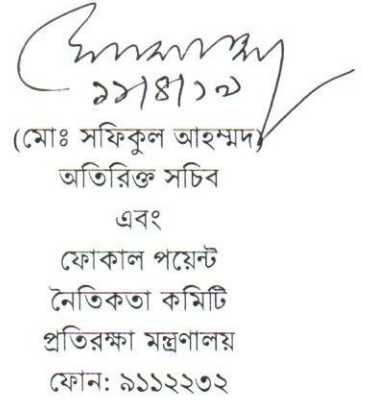 ১১/৪/১৭
(মোঃ সফিকুল আহম্মদ)
অতিরিক্ত সচিব
এবং
ফোকাল পয়েন্ট
নৈতিকতা কমিটি
প্রতিরক্ষা মন্ত্রণালয়
ফোন: ৯১১২২৩২